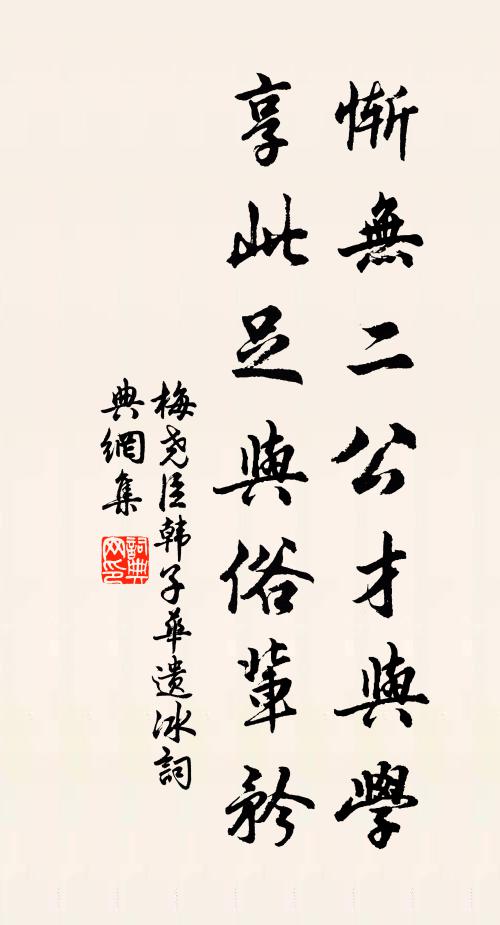 慚無二公才與學
享此足與俗輩矜
梅尧臣韩子華遺冰詞
典網集
詞典网印